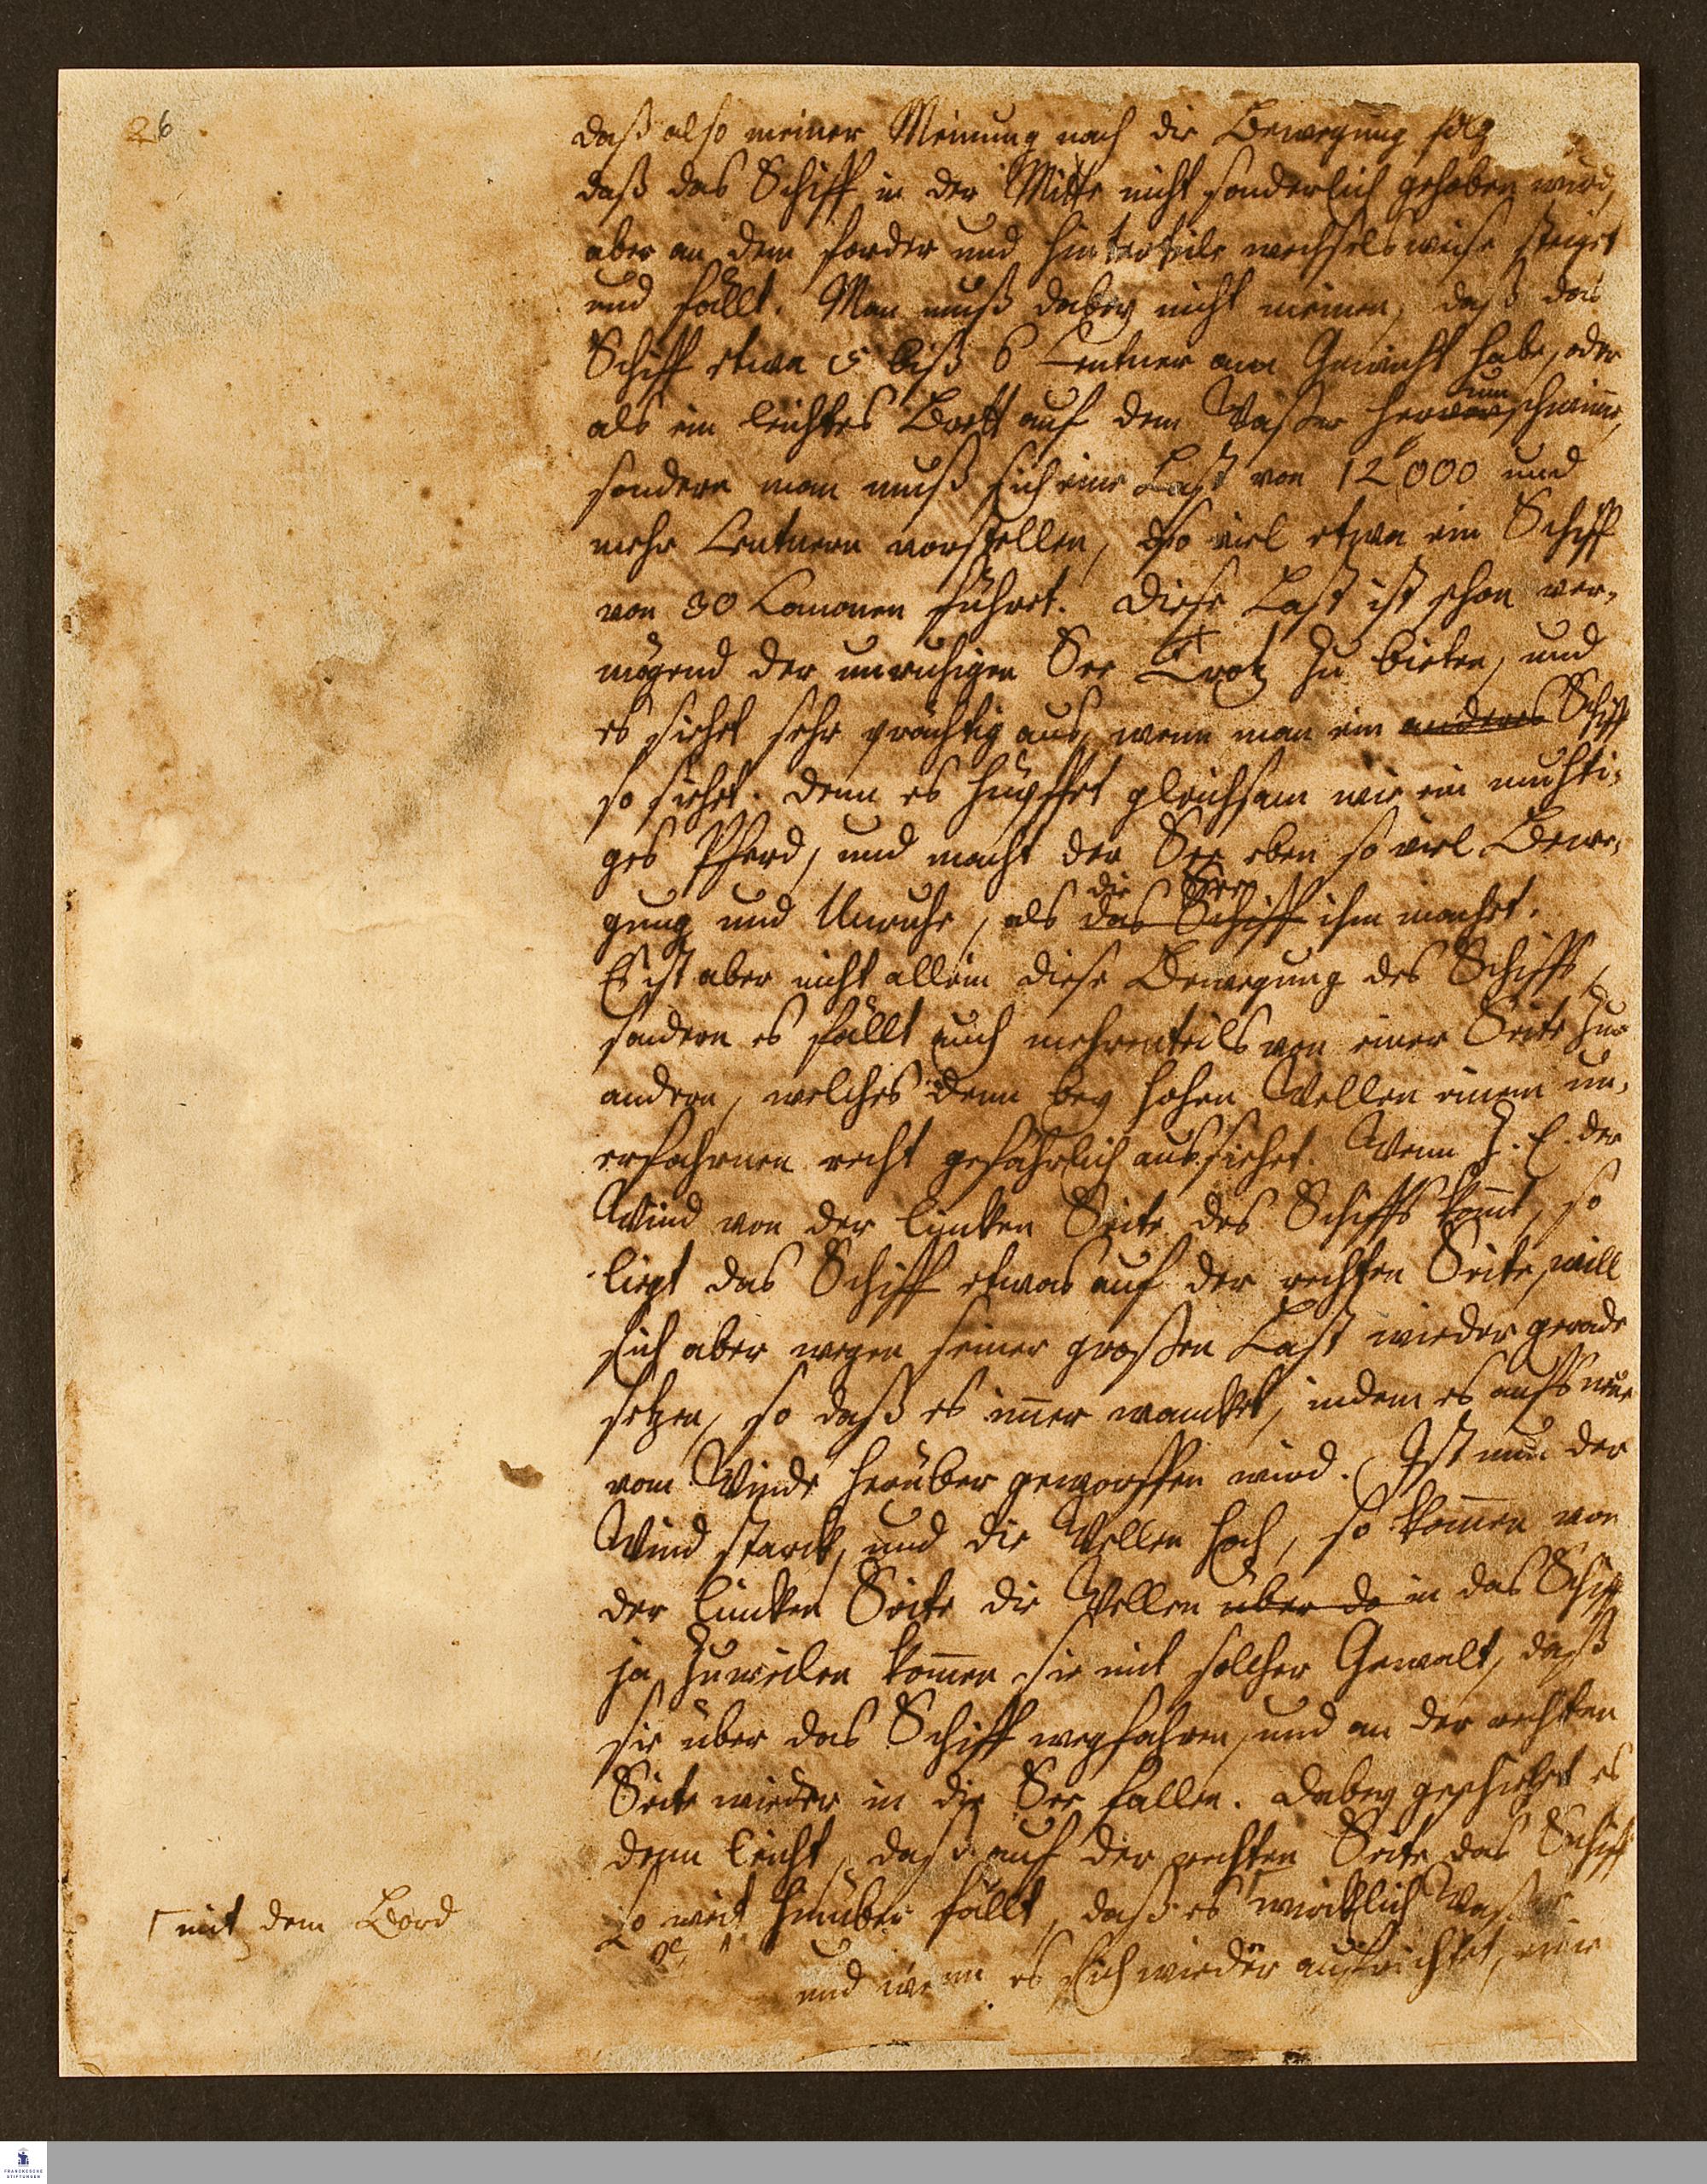 26
daß also meiner Meinung nach die Bewegung folg
daß das Schiff in der Mitte nicht sonderlich gehoben wird,
aber an dem forder und hinterteile wechselsweise steiget
und fällt. Man muß dabey nicht meinen, daß das
Schiff etwa 5 biß 6 Centner am Gewicht habe, oder
um
als ein leichtes Brett auf dem Waßer herschwimme,
sondern man muß sich eine Last von 12000 und
mehr Centnern vorstellen, so viel etwa ein Schiff
von 30 Canonen führet. Diese Last ist schon ver-
mögend der unruhigen See Trotz zu bieten, und
es siehet sehr prächtig aus, wenn man ein anderes Schiff
so siehet. denn es hüpffet gleichsam wie ein muhti-
ges Pferd, und macht der See eben so viel Bewe-
die See
gung und Unruhe, als das Schiff ihm machet.
Es ist aber nicht allein diese Bewegung des Schiffs,
sondern es fällt auch mehrenteils von einer Seite zur
andern, welches denn bey hohen Wellen einem un-
erfahrnen recht gefährlich aussiehet. Wenn z. E. der
Wind von der lincken Seite des Schiffs kom̄t, so
liegt das Schiff etwas auf der rechten Seite, will
sich aber wegen seiner großen Last wieder gerade
setzen, so daß es im̄er wancket, indem es aufs neue
vom Winde herüber geworffen wird. Ist nun der
Wind starck, und die Wellen hoch, so kom̄en von
der lincken Seite die Wellen über da in das Schiff
ja zuweilen kom̄en sie mit solcher Gewalt, daß
sie über das Schiff wegfahren, und an der rechten
Seite wieder in die See fallen. Dabey geschiehet es
denn leicht, daß auf der rechten Seite das Schiff
so weit hinüber fällt, daß es ⌈ wircklich Waßer
⌈ mit dem Bord
und wenn es sich wieder aufrichtet, eine